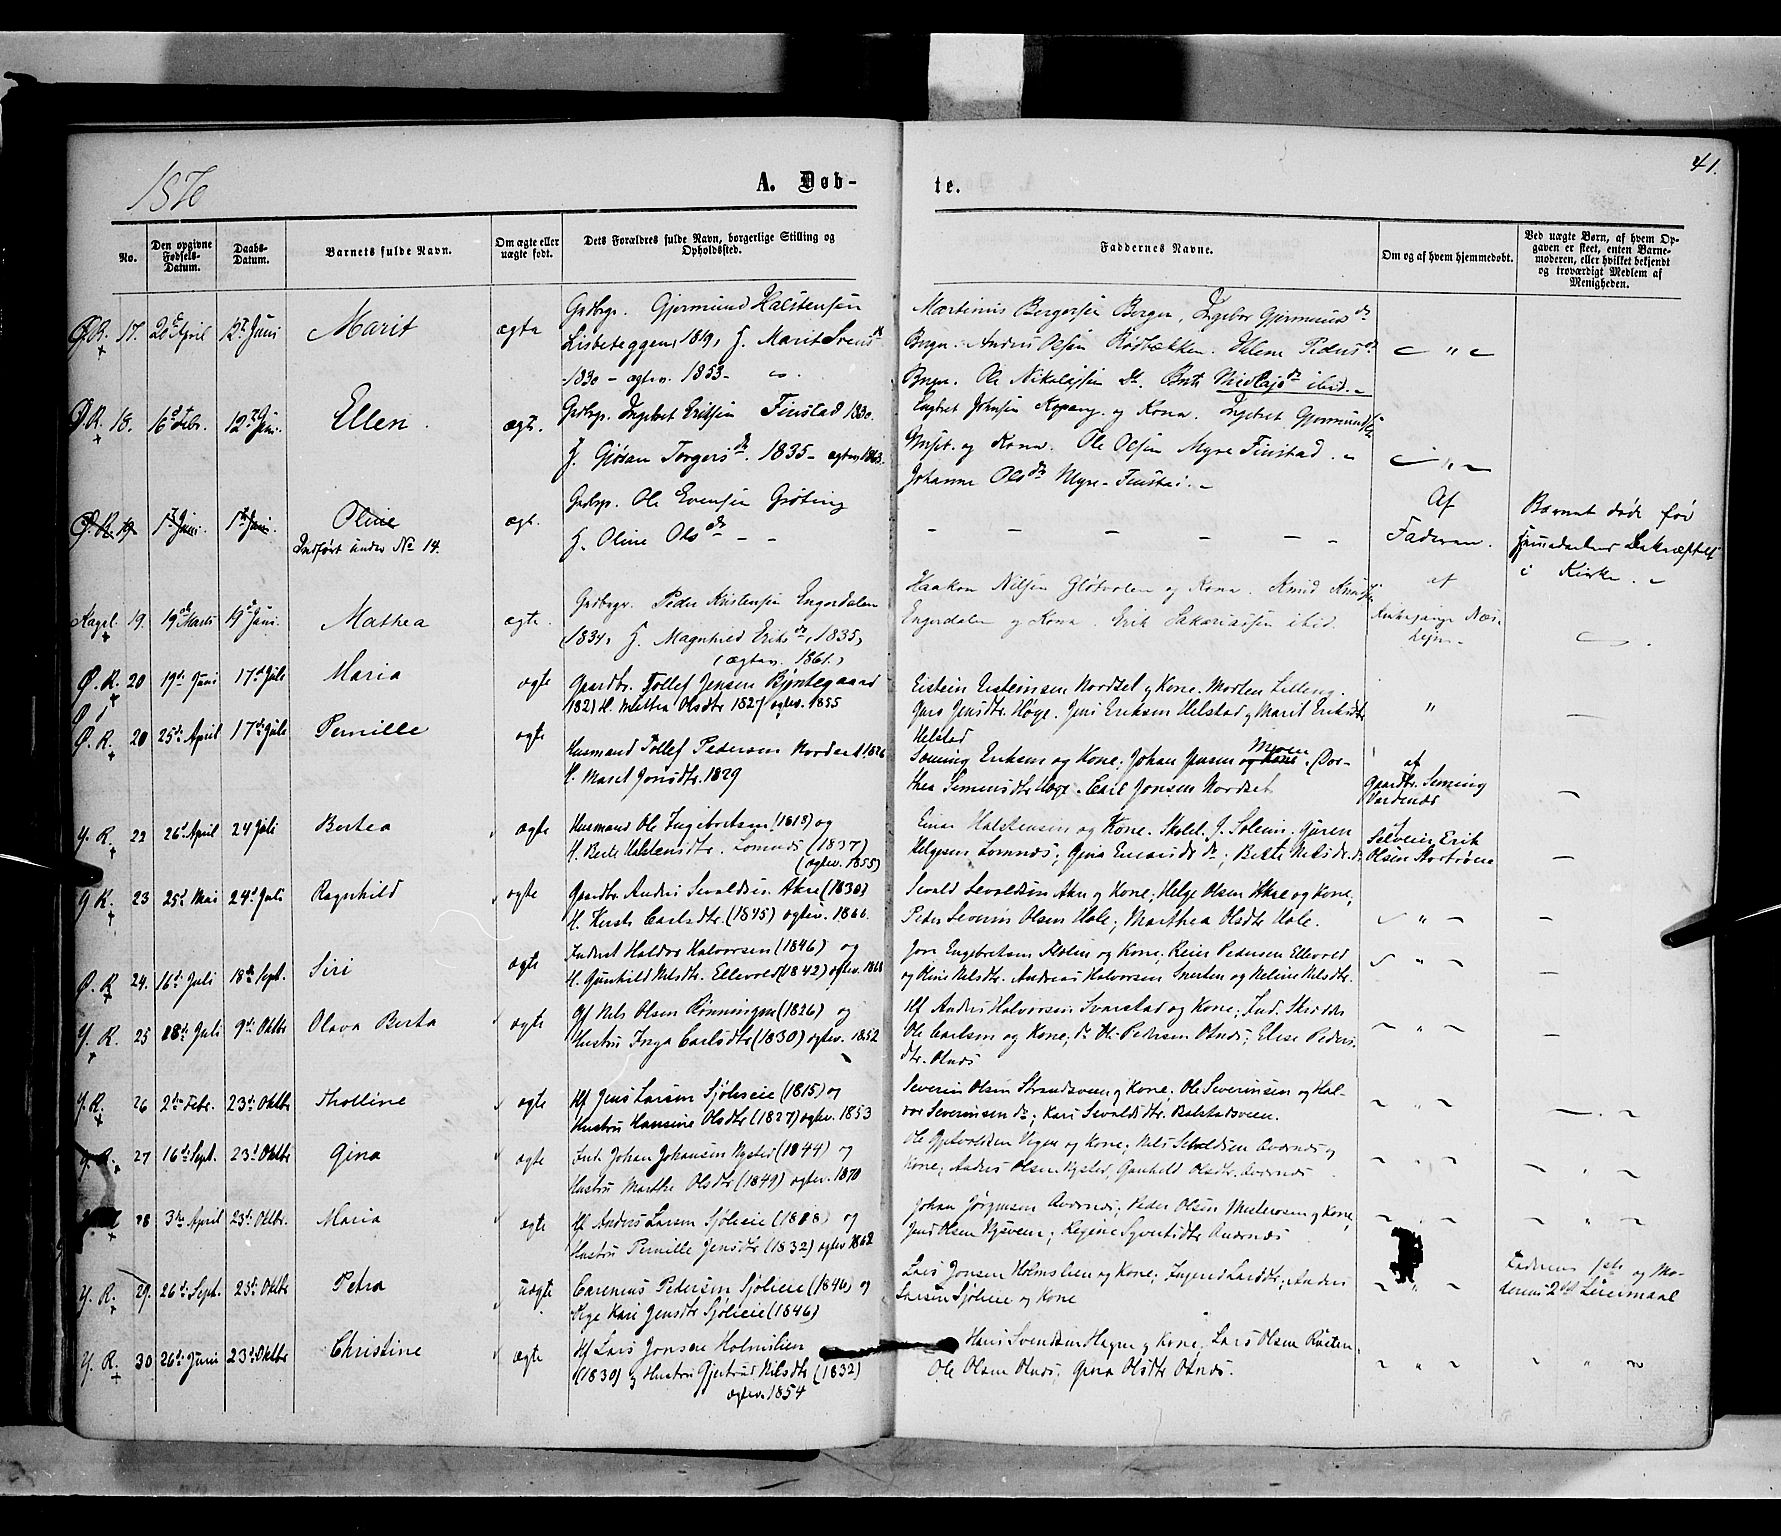 1870
A. Døb-
te.
41.
No.
Den opgivne Fødsels-Datum.
Daabs-Datum.
Barnets fulde Navn.
Om ægte eller uægte født.
Dets Forældres fulde Navn, borgerlige Stilling og Opholdssted.
Faddernes Navne.
Om og af hvem hjemmedøbt.
Ved uægte Børn, af hvem Opgaven er skeet, enten Barnemoderen, eller hvilket bekjendt og troværdigt Medlem af Menigheden.
Ø.R. 17. 20 April 12 Juni Marit ægte Gjermund Halstensen
Lisbeteggen, 1819, H. Marit Svens
1830 - ægtev. 1853
Martinus Bergersen Berger, Ingebor Gjermunds dr
Anders Olsen Rødbækken. Helene Peders dr
Ole Nikolajsen Do. Nicolajs dr ibid.
Ø.R. 18. 16 Febr. 12 Juni. Ellen. ægte. Ingebret Eriksen Finstad 1830
H. Gjøran Torgers dr. 1835 - ægtev. 1863.
Engbret Johnsen Kopang. og Kone. Ingebret Gjermundsen
og Kone. Ole Olsen Myre Finstad.
Johanne Ols dr Myre-Finstad.
Ø.R. 19 1 Juni. 1 Juni. Oline ægte. Ole Evensen Grøting
Indført under No 14. H. Oline Ols dr
Af Faderen.
Barnet døde før
hjemmedaabens Bekræftelse
i Kirke.
Kapel. 19. 19 Marts 19 Juni. Mathea ægte. Peder Kristensen Engerdalen
1834, H. Magnhild Eriks dr, 1835,
(ægtev. 1861.)
Haakon Nilsen Gløtvolen og Kone. Knud
Engerdalen og Kone. Erik Sakariassen ibid.
af Kirkesanger
Ø.R. 20 19de Juni 17de Juli Maria ægte Gaardbr. Tollef Jensen Bjøntegaard
1821 H. Mathea Olsdtr 1827 ægtev. 1855
Eistein Eisteinsen Nordset og Kone. Morten Lilleng.
Guro Jensdtr. Høge. Jens Eriksen Helstad og Marit Eriksdtr
Helstad
Ø.R. 20 25de April 17de Juli Pernille ægte Husmand Tollef Pedersen Nordset 1826
H. Maret Jonsdtr. 1829
Søming Eriksen og Kone, Johan Jensen og Kone Moen. Dor-
thea Simensdtr Høge. Carl Jonsen Nordset
af Gaardbr. Seming
Y.R. 22 26de April 24 Juli Bertea ægte Husmand Ole Ingebretsen (1818) og
H. Berte Halstensdtr. Lomnæs (1837)
(ægtev. 1855)
Einar Halstensen og Kone. Skolel. J. Solem. Gjøren
Helgesen Lomnæs; Gina Einarsdr; Berte Nilsdr do
Erik
Olsen
Y.R. 23 25de Mai 24de Juli Ragnhild ægte Gaardbr. Anders Sevaldsen Akre (1830)
H. Kersti Carlsdtr. (1845) ægtev. 1866.
Sevald Sevaldsen Akre og Kone; Helge Olsen Akre og Kone;
Peder Severin Olsen Hole; Marthea Olsdtr Hole.
Ø.R. 24. 16de Juli 18de Sept. Siri ægte Inderst Haldor Halvorsen (1846) og
H. Gunhild Nilsdtr. Ellevold (1842) ægtev. 1868
Jon Engebretsen Holen og Kone; Reier Pedersen Ellevold
og Oline Nilsdtr. Andreas Halvorsen Snerten og Nelline Nilsdtr.
Y.R. 25 18de Juli 9de Oktbr Olava Berta ægte Hf Nils Olsen Rønningen (1826) og
Hustru Inga Carlsdtr (1830) ægtev. 1852
Hf Anders Halvorsen Svarstad og Kone; Ind.
Ole Carlsen og Kone; do Ole Pedersen Otnæs; Elise Peders-
dtr. Otnæs
Y.R. 26 2de Febr. 23de Oktbr Tholline ægte Hf Jens Larsen Sjølieie (1815) og
Hustru Hansine Olsdtr (1827) ægtev. 1853
Severin Olsen Strandsveen og Kone; Ole Severinsen og Hal-
vor Severinsen do; Kari Sevaldsdtr. Balstadsveen.
Y.R. 27 16de Sept. 23de Oktbr Gina ægte Ind. Johan Johansen Nysted (1844) og
Hustru Marthe Olsdtr (1849) ægtev. 1870
Ole Gjetvoldsen Vigen og Kone; Nils Sevaldsen Aurnæs og
Kone; Anders Olsen Nysted, Gunhild Olsdtr. Aurnæs
28 3de April 23de Oktbr. Maria ægte Hf Anders Larsen Sjølieie (1828) og
Hustru Pernille Jensdtr (1832) ægtev 1862
Johan Jørgensen Aurnæs; Peder Olsen Mestermoen og Kone;
Jens Olsen Nysveen; Regine Syvertsdtr Aurnæs
Y.R. 29. 26de Sept. 23de Oktbr Petra uægte Carenius Pedersen Sjølieie (1846) og
Pige Kari Jensdtr Sjølieie (1846)
Lars Jonsen Holmslien og Kone; Ingrid Larsdtr; Anders
Larsen Sjølieie og Kone
Faderens 1ste og Mo-
derens 2det Leiermaal
Y.R. 30 26de Juni 23de Oktbr Christine ægte Hf Lars Jonsen Holmslien
(1830) og Hustru Gjertrud Nilsdtr (1832)
ægtev. 1854
Hans Svendsen Hagen og Kone, Lars Olsen Røsten.
Ole Olsen Otnæs; Gina Olsdtr Otnæs.